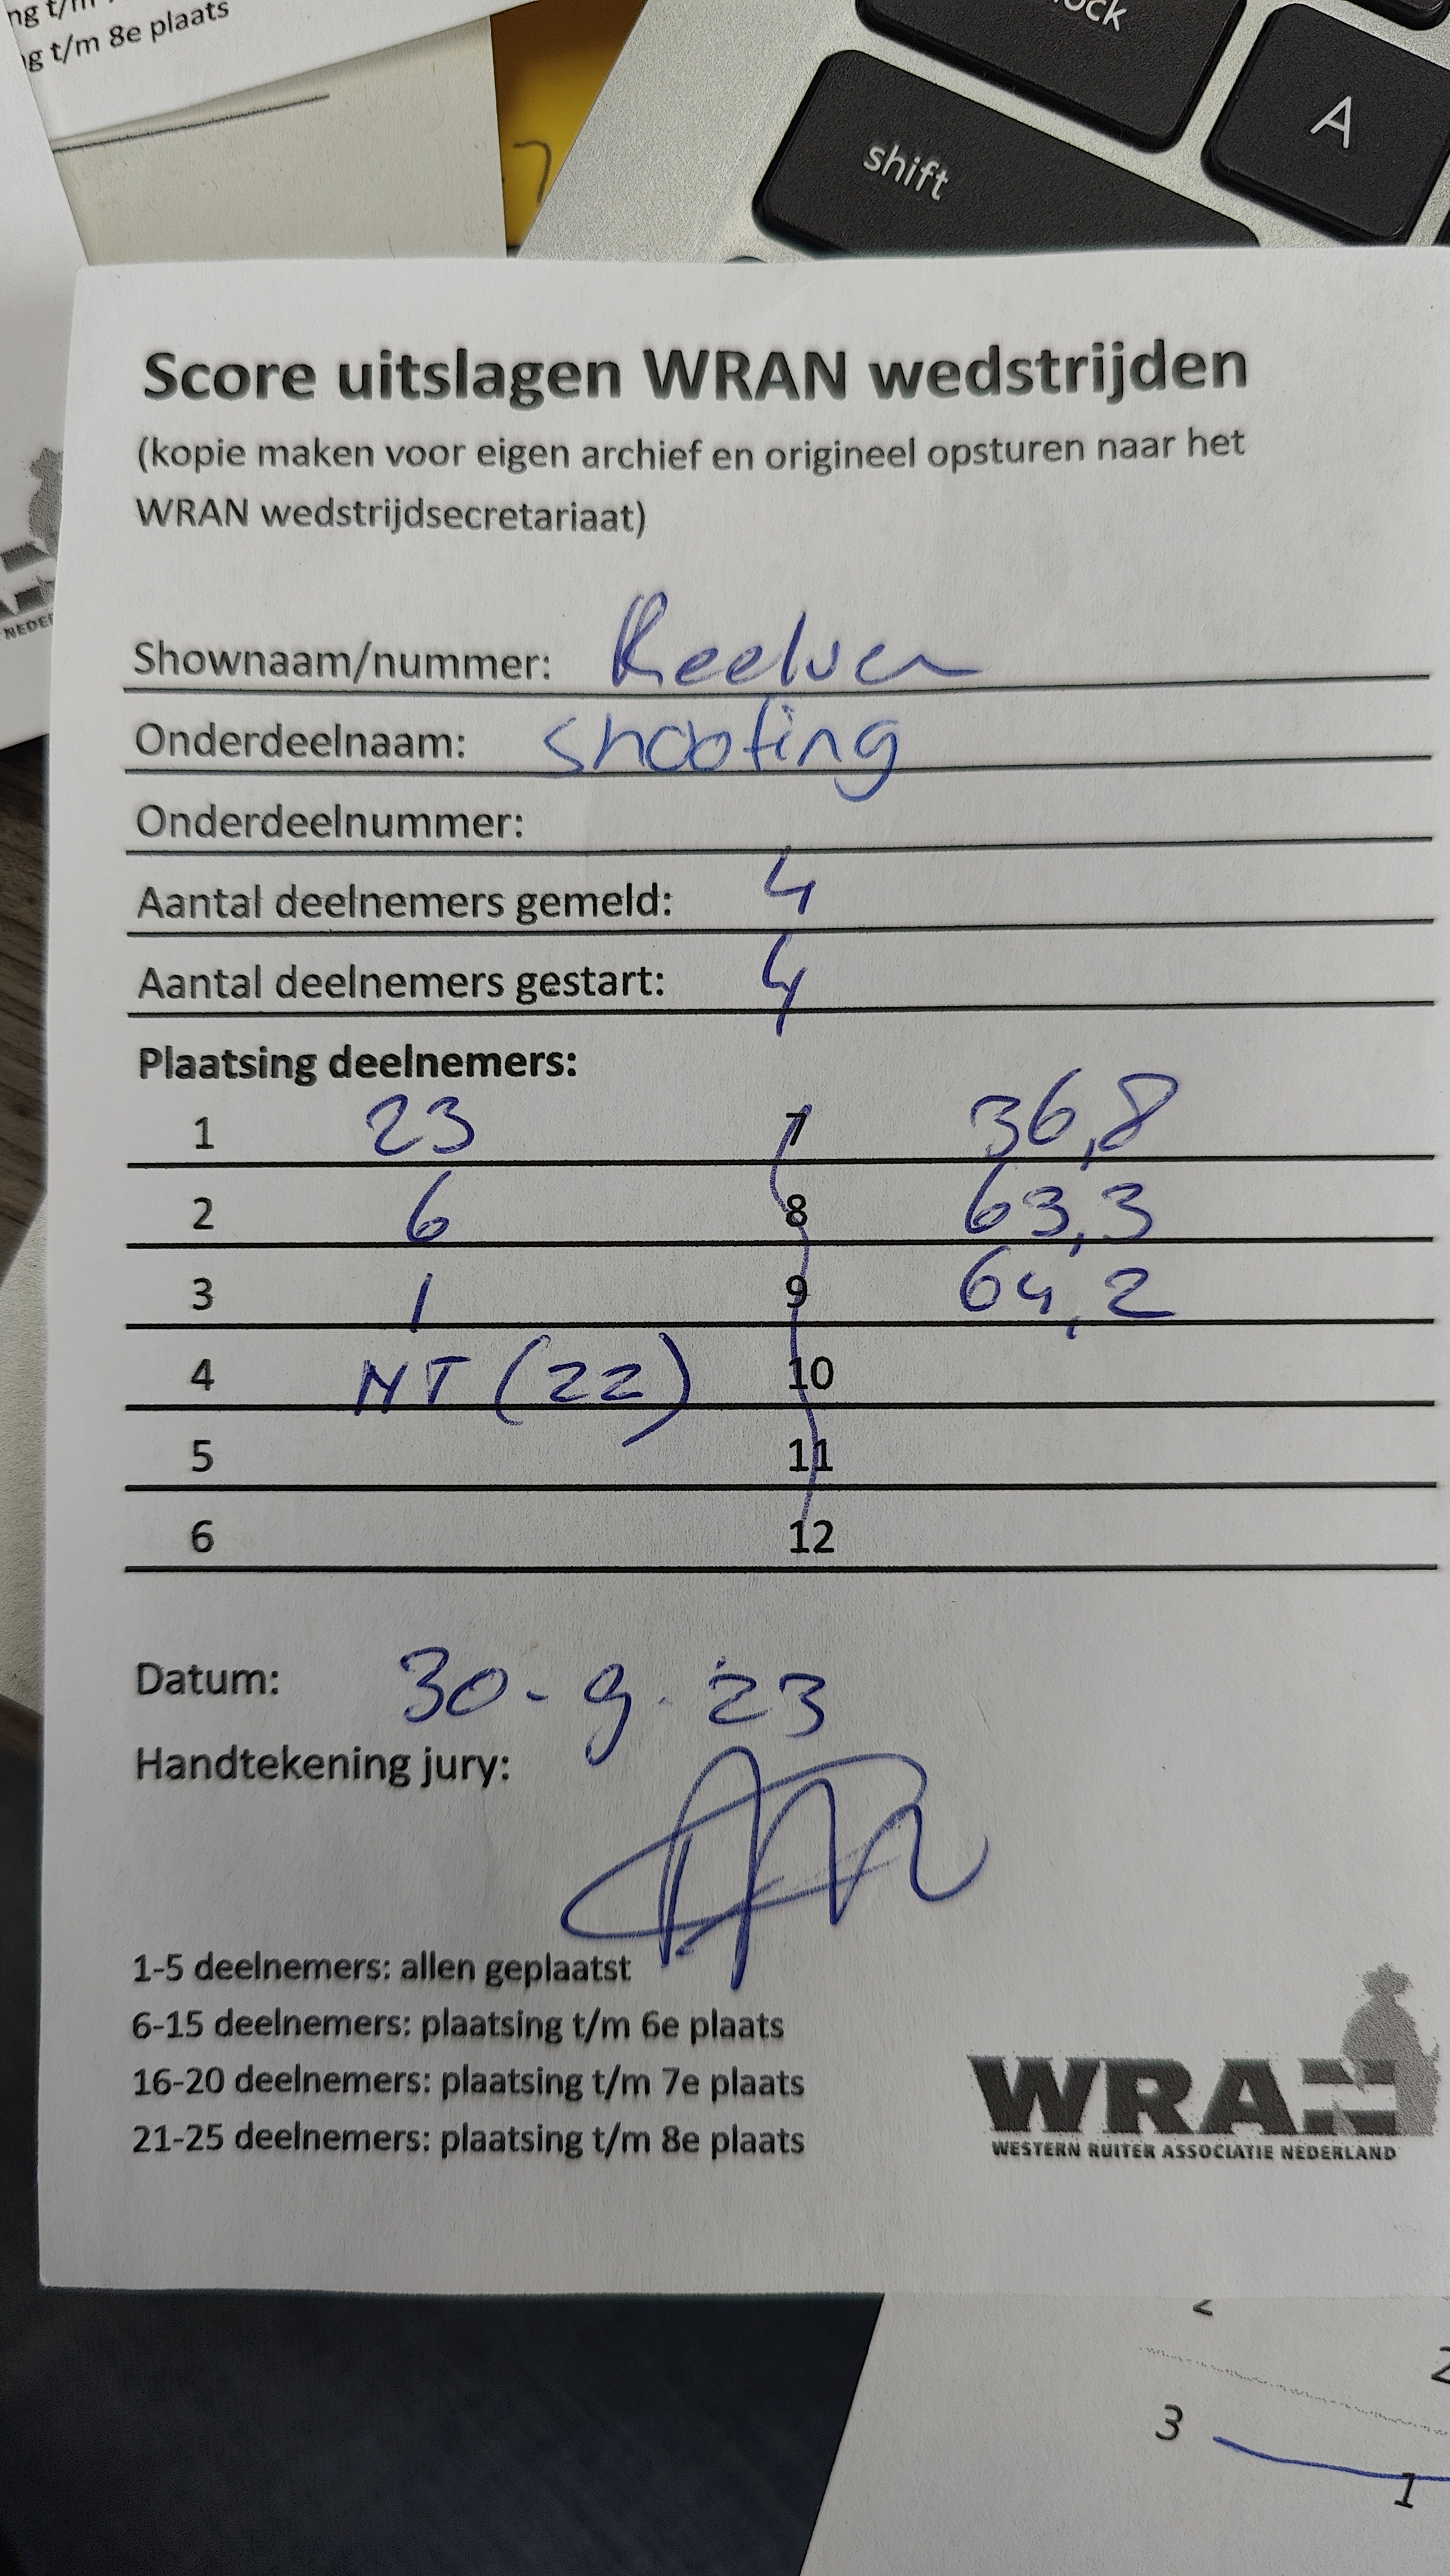 g t/m 8e plaats
shift
A
Score uitslagen WRAN wedstrijden
(kopie maken voor eigen archief en origineel opsturen naar het
WRAN wedstrijdsecretariaat)
Shownaam/nummer: Reelver
Onderdeelnaam: shooting
Onderdeelnummer:
Aantal deelnemers gemeld: 4
Aantal deelnemers gestart: 4
Plaatsing deelnemers:
1 23 7 36,8
2 6 8 63,3
3 1 9 64,2
4 NT (22) 10
5 11
6 12
Datum: 30-9-23
Handtekening jury:
1-5 deelnemers: allen geplaatst
6-15 deelnemers: plaatsing t/m 6e plaats
16-20 deelnemers: plaatsing t/m 7e plaats
21-25 deelnemers: plaatsing t/m 8e plaats
WRAN
WESTERN RUITER ASSOCIATIE NEDERLAND
3
1